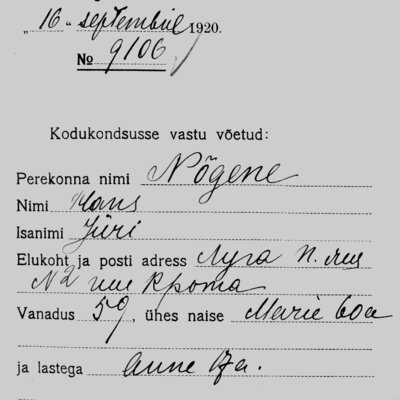 "16" septembril 1920.
№ 9106
Kodukondsusse vastu võetud:
Perekonna nimi Nõgene
Nimi Hans
Isanimi Jüri
Elukoht ja posti adress
Vanadus 59, ühes naise Marie 60a
ja lastega Anne 17a.